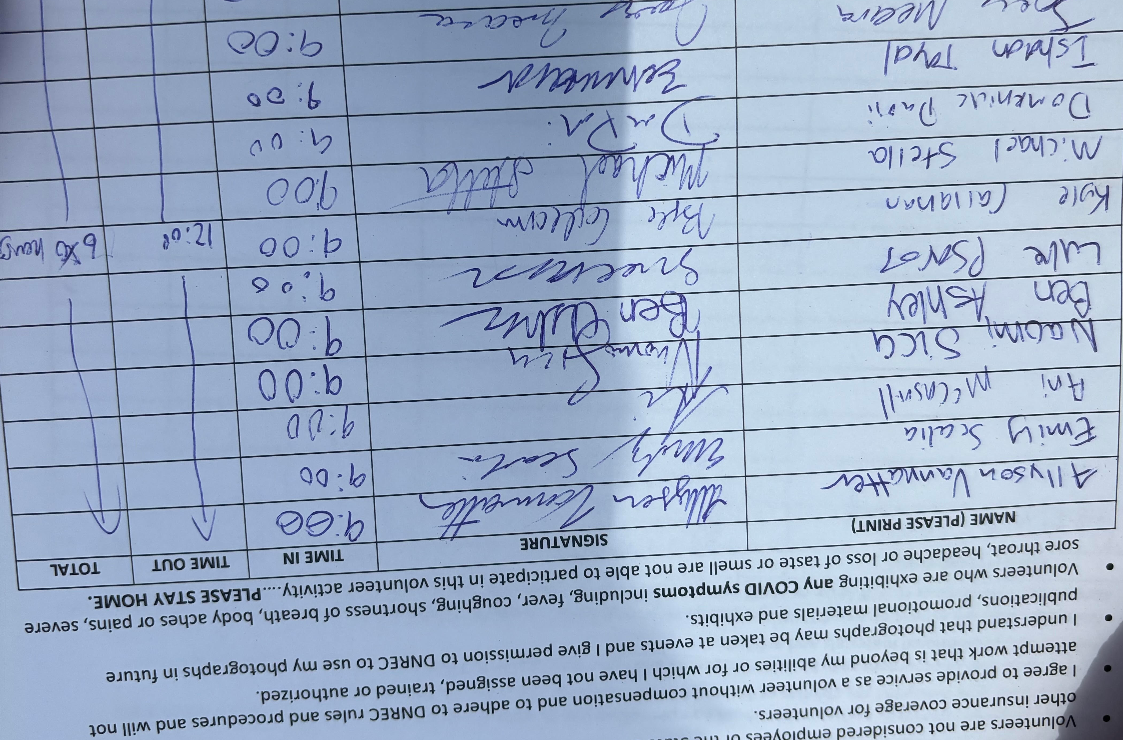 Volunteers are not considered employees of the
other insurance coverage for volunteers.
I agree to provide service as a volunteer without compensation and to adhere to DNREC rules and procedures and will not
attempt work that is beyond my abilities or for which I have not been assigned, trained or authorized.
I understand that photographs may be taken at events and I give permission to DNREC to use my photographs in future
publications, promotional materials and exhibits.
Volunteers who are exhibiting any COVID symptoms including, fever, coughing, shortness of breath, body aches or pains, severe
sore throat, headache or loss of taste or smell are not able to participate in this volunteer activity....PLEASE STAY HOME.
NAME (PLEASE PRINT) SIGNATURE TIME IN TIME OUT TOTAL
Allyson Vannatter Allyson Vannatter 9:00
Emily Scalia Emily Scalia 9:00
Ani Ani 9:00
Naomi Sica Naomi Sica 9:00
Ben Ashley Ben 9:00
Luke 9:00
Kyle Callahan Kyle 9:00 12:00 hours
Michael Stella Michael Stella 900
Domenic 9:00
Ishaan Tayal 9:00
Meara Meara 9:00